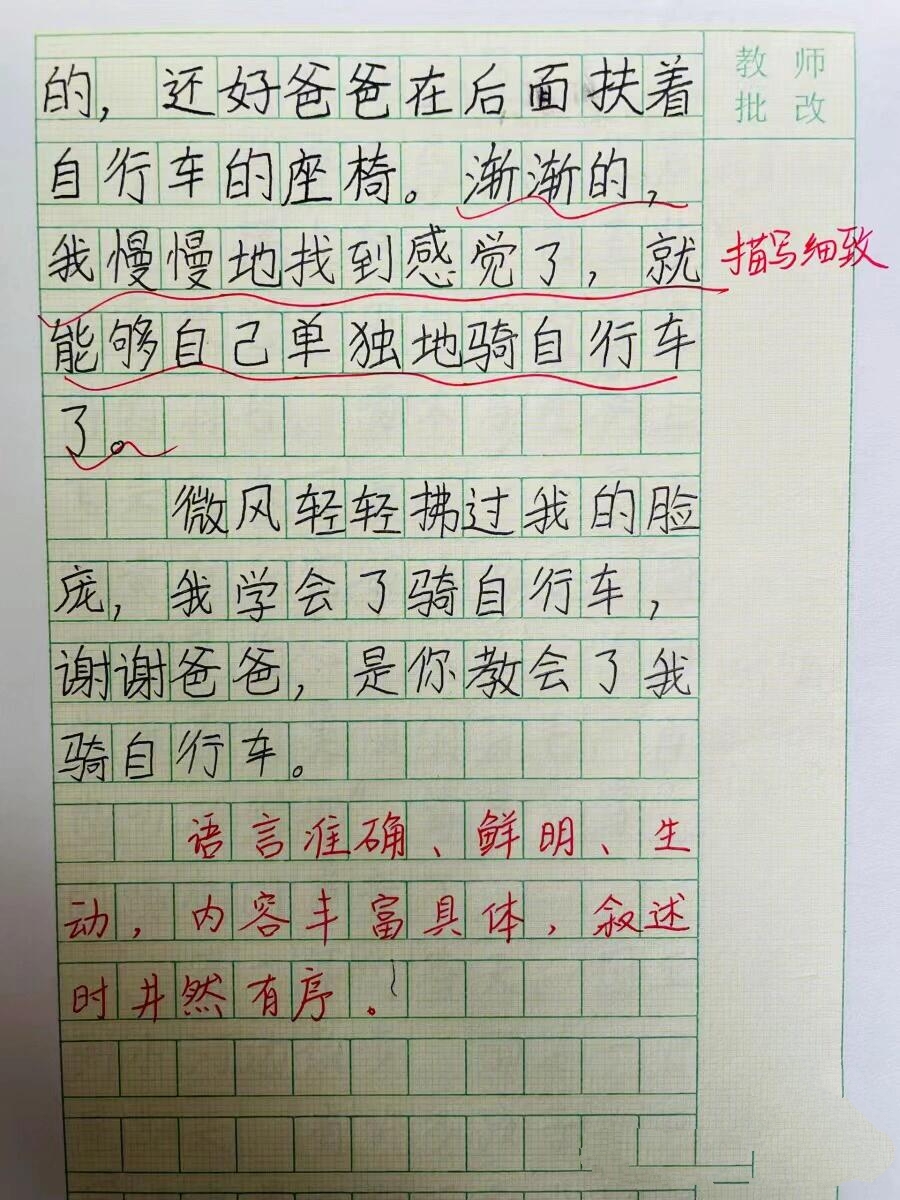 教师
批改
的，还好爸爸在后面扶着
自行车的座椅。渐渐的，
我慢慢地找到感觉了，就
描写细致
能够自己单独地骑自行车
了。
微风轻轻拂过我的脸
庞，我学会了骑自行车，
谢谢爸爸，是你教会了我
骑自行车。
语言准确、鲜明、生
动，内容丰富具体，叙述
时井然有序。